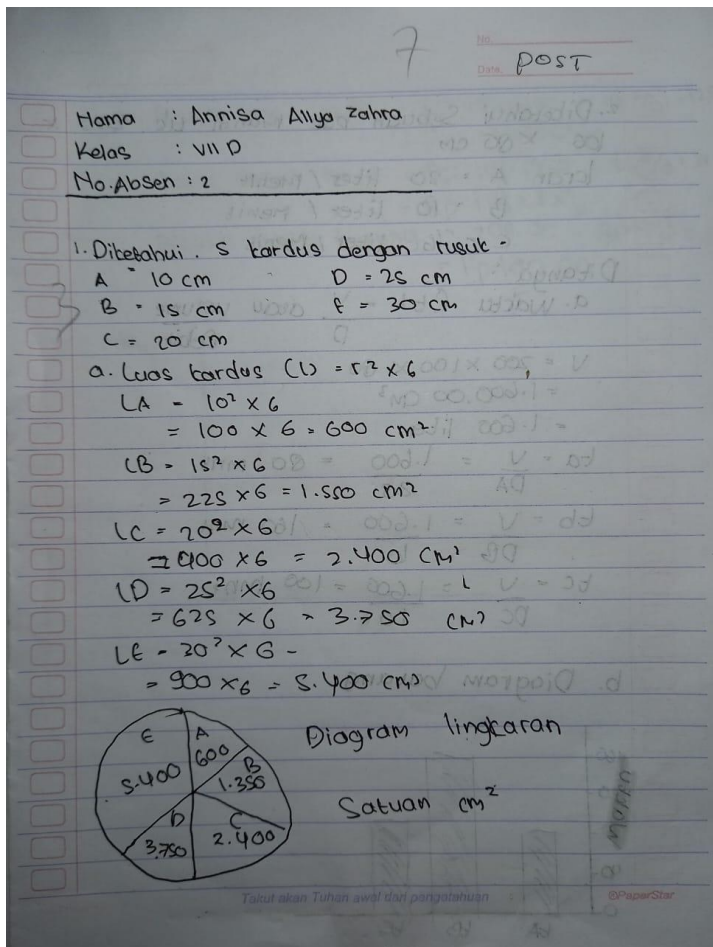 7
No.
Date. POST
Nama : Annisa Allya Zahra
Kelas : VII D
No.Absen : 2
1. Diketahui . 5 kardus dengan rusuk -
A = 10 cm D = 25 cm
B = 15 cm E = 30 cm
C = 20 cm
a. Luas kardus (L) = r² × 6
LA = 10² × 6
= 100 × 6 = 600 cm²
LB = 15² × 6
= 225 × 6 = 1.550 cm²
LC = 20² × 6
= 400 × 6 = 2.400 cm²
LD = 25² × 6
= 625 × 6 = 3.750 cm²
LE = 30² × 6 -
= 900 × 6 = 5.400 cm²
E A
5.400 600
B
1.350
D C
3.750 2.400
Diagram lingkaran
Satuan cm²
Takut akan Tuhan awal dari pengetahuan
©PaperStar